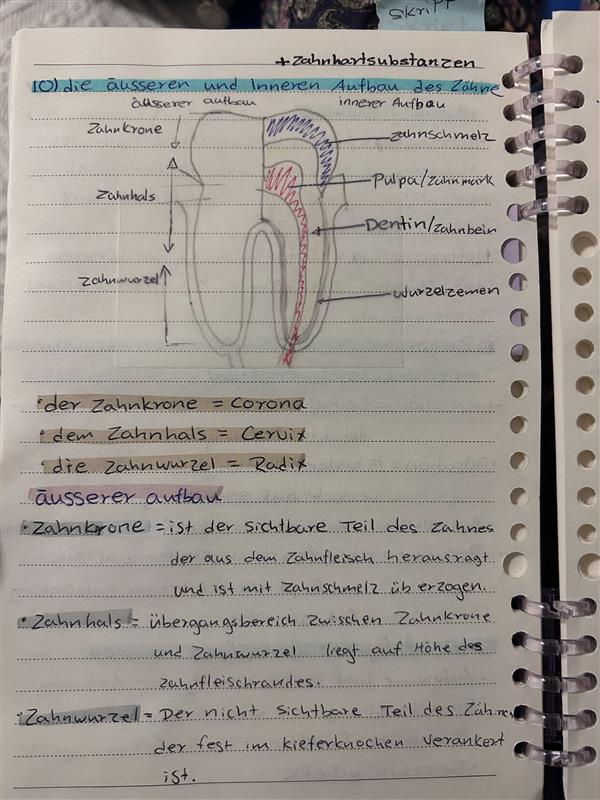 skript
+ Zahnhartsubstanzen
10) die äusseren und Inneren Aufbau des Zähne
äusserer aufbau
innerer Aufbau
Zahnkrone
Zahnschmelz
Pulpa/Zahnmark
Zahnhals
Dentin/Zahnbein
Zahnwurzel
Wurzelzemen
• der Zahnkrone = Corona
• dem Zahnhals = Cervix
• die Zahnwurzel = Radix
äusserer aufbau
• Zahnkrone = ist der sichtbare Teil des Zahnes
der aus dem Zahnfleisch herausragt
und ist mit Zahnschmelz überzogen.
• Zahnhals = übergangsbereich zwischen Zahnkrone
und Zahnwurzel liegt auf Höhe des
zahnfleischrandes.
• Zahnwurzel = Der nicht sichtbare Teil des Zähne,
der fest im kieferknochen verankert
ist.